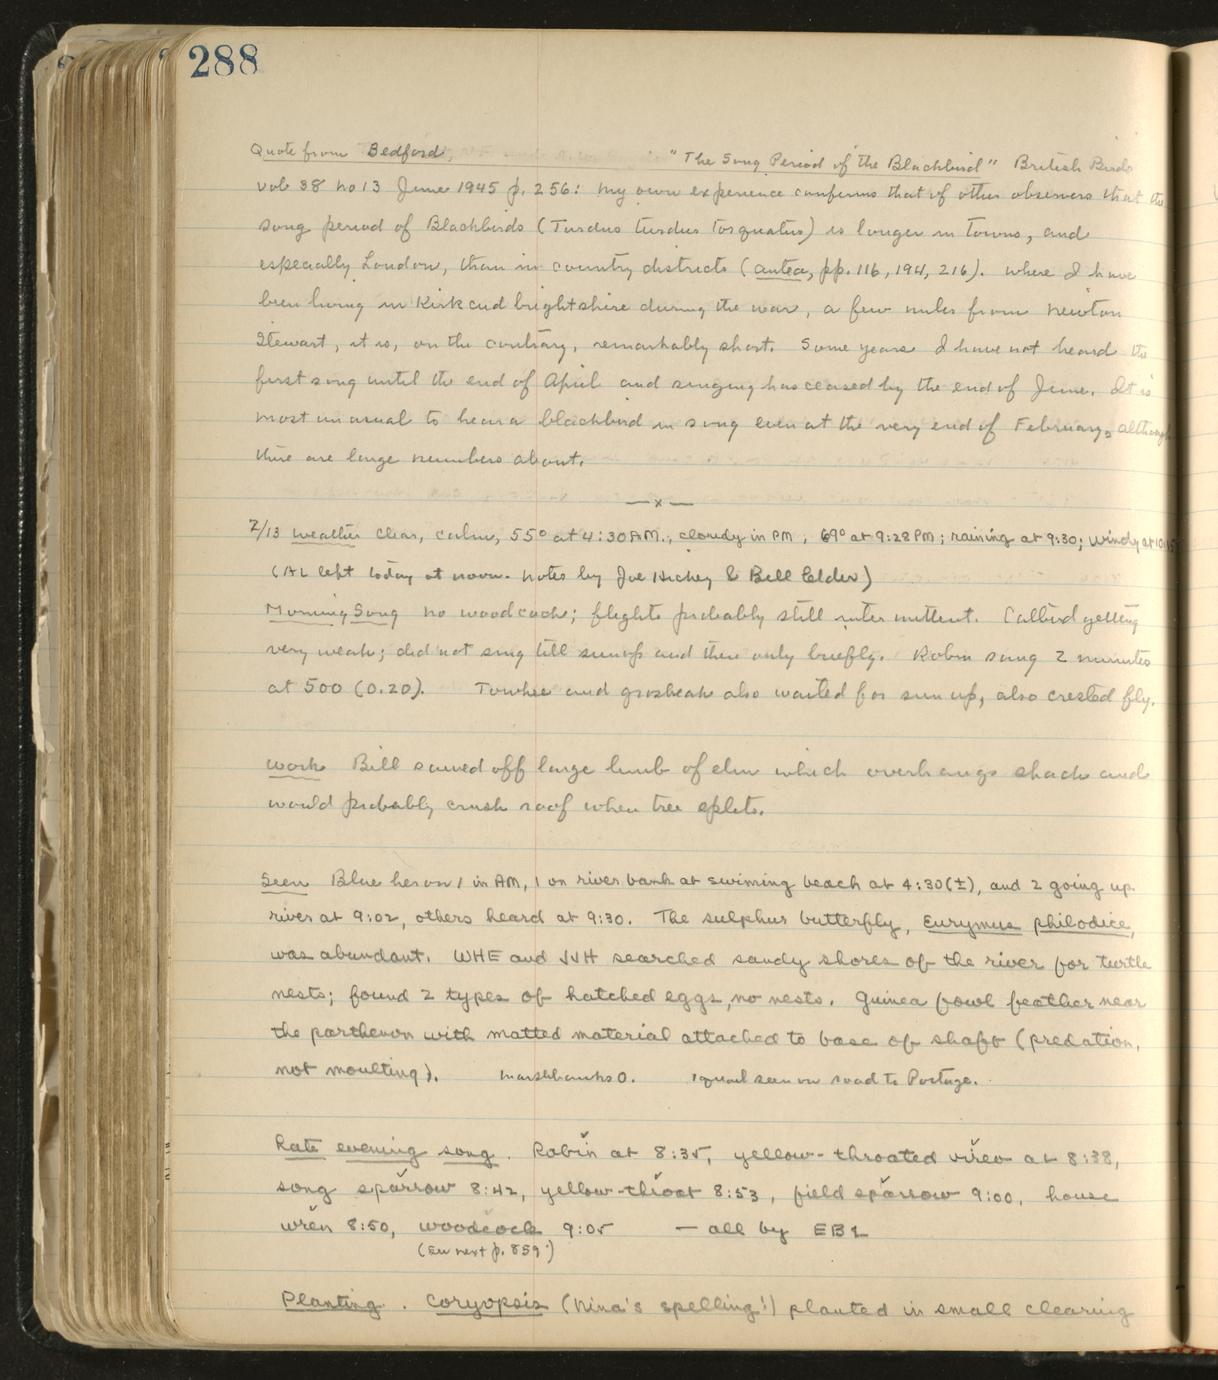 288
Quote from Bedford, "The Song Period of the Blackbird" British Birds
vol 38 no 13 June 1945 p. 256: My own experience confirms that of other observers that the
song period of Blackbirds (Turdus turdus torquatus) is longer in towns, and
especially London, than in country districts (antea, pp. 116, 194, 216). Where I have
been living in Kirkcudbrightshire during the war, a few miles from Newton
Stewart, it is, on the contrary, remarkably short. Some years I have not heard the
first song until the end of April and singing has ceased by the end of June. It is
most unusual to hear a blackbird in song even at the very end of February, although
there are large numbers about.
—x—
7/13 Weather clear, calm, 55° at 4:30 AM., cloudy in PM, 69° at 9:28 PM; raining at 9:30; windy at
(AL left today at noon. Notes by Joe Hickey & Bill Elder)
Morning Song no woodcock; flights probably still intermittent. Catbird getting
very weak; did not sing till sunup and then only briefly. Robin sang 2 minutes
at 500 (0.20). Towhee and grosbeak also waited for sun up, also crested fly.
Work Bill sawed off large limb of elm which overhangs shack and
would probably crush roof when tree splits.
Seen Blue heron 1 in AM, 1 on river bank at swiming beach at 4:30 (±), and 2 going up
river at 9:02, others heard at 9:30. The sulphur butterfly, Eurymus philodice,
was abundant. WHE and JJH searched sandy shores of the river for turtle
nests; found 2 types of hatched eggs, no nests. Guinea fowl feather near
the parthenon with matted material attached to base of shaft (predation,
not moulting). Marshhawks 0. 1 quail seen on road to Portage.
Late evening song. Robin at 8:35, yellow-throated vireo at 8:38,
song sparrow 8:42, yellow-throat 8:53, field sparrow 9:00, house
wren 8:50, woodcock 9:05 — all by EBL
(See next p. 859)
Planting. Coryopsis (Nina's spelling!) planted in small clearing